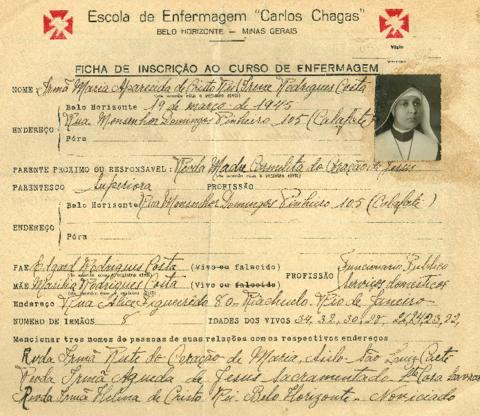 Escola de Enfermagem "Carlos Chagas"
BELO HORIZONTE — MINAS GERAIS
FICHA DE INSCRIÇÃO AO CURSO DE ENFERMAGEM
NOME Irmã Maria Aparecida de Cristo Rei Irene Rodrigues Costa
Belo Horizonte 19 de março de 1945
ENDEREÇO: Rua Monsenhor Domingos Pinheiro 105 (Calafate)
Fóra
PARENTE PROXIMO OU RESPONSAVEL: Revda Madre Carmelita do Coração de Jesus
PARENTESCO Superiora PROFISSÃO
Belo Horizonte Rua Monsenhor Domingos Pinheiro 105 (Calafate)
ENDEREÇO:
Fóra
PAE Edgard Rodrigues Costa (vivo ou falecido) PROFISSÃO Funcionario Publico
MÃE Marilia Rodrigues Costa (vivo ou falecido) serviços domesticos
Endereço Rua Alice Figueiredo 80 Riachuelo Rio de Janeiro
NUMERO DE IRMÃOS 8 IDADES DOS VIVOS 34, 32, 30, 28, 26, 24, 23, 22,
Mencionar três nomes de pessoas de suas relações com os respectivos endereços
Revda Irmã Ruth do Coração de Maria, Asilo São Luiz Caeté
Revda Irmã Agueda de Jesus Sacramentado Sta Casa
Revda Irmã Helena de Cristo Rei Belo Horizonte - Noviciado